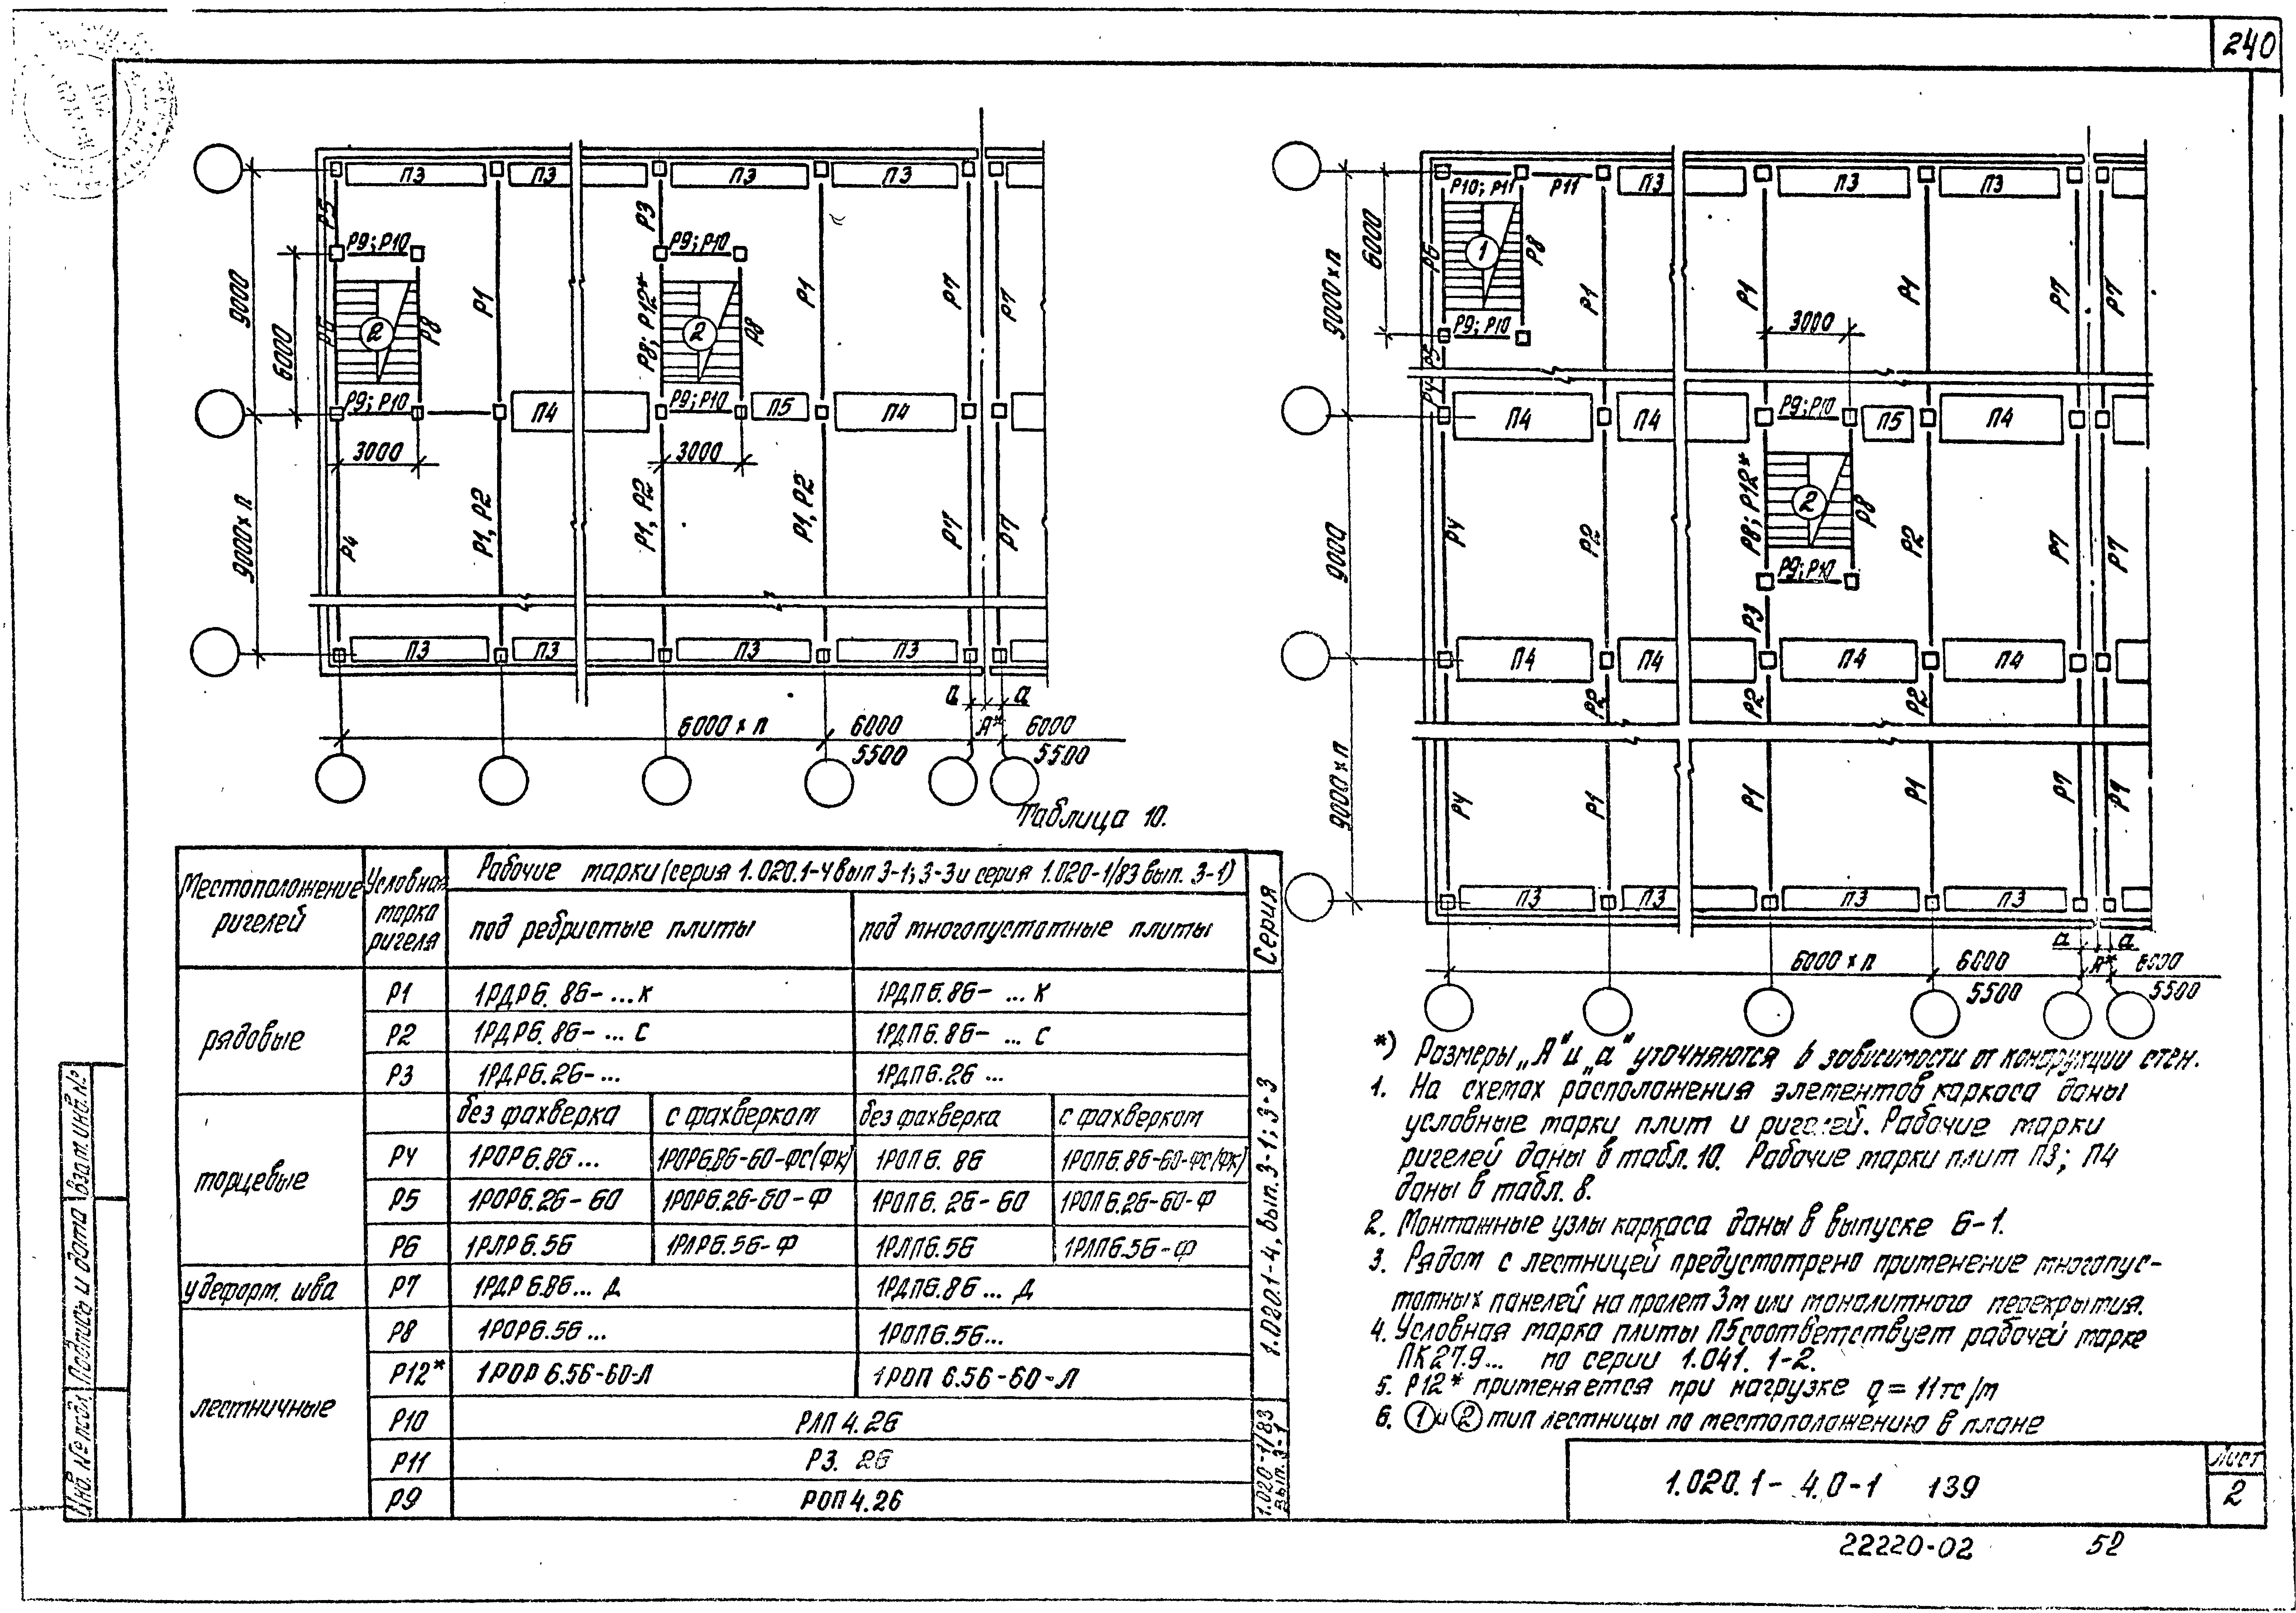 240
П3 П3 П3 П3
Р5
Р3
Р9; Р10
Р9; Р10
9000
6000
Р6
2
Р8
Р1
Р8; Р12*
2
Р8
Р1
Р7
Р7
Р9; Р10
П4
Р9; Р10
П5
П4
3000
3000
9000 x п
Р4
Р1, Р2
Р1, Р2
Р1, Р2
Р7
Р7
П3 П3 П3 П3
а а
6000 x п
6000
А*
6000
5500
5500
Р10; Р11
Р11
П3
П3
П3
9000 x п
6000
Р6
1
Р8
Р1
Р1
Р1
Р7
Р7
Р9; Р10
3000
Р5
Р4
П4
П4
Р9; Р10
П5
П4
9000
Р4
Р2
Р8; Р12*
2
Р8
Р2
Р7
Р7
Р9; Р10
Р3
П4
П4
П4
П4
Р2
Р2
Р2
9000 x п
Р4
Р1
Р1
Р1
Р7
Р7
П3 П3 П3 П3
а а
6000 x п
6000
А*
6000
5500
5500
Таблица 10.
Местоположение ригелей
Условная марка ригеля
Рабочие марки (серия 1.020.1-4 вып 3-1; 3-3 и серия 1.020-1/83 вып. 3-1)
Серия
под ребристые плиты
под многопустотные плиты
рядовые
Р1 1РДР6.86-...к 1РДП6.86- ... к
Р2 1РДР6.86- ... с 1РДП6.86- ... с
Р3 1РДР6.26-... 1РДП6.26 ...
торцевые
без фахверка с фахверком без фахверка с фахверком
Р4 1РОР6.86... 1РОР6.86-60-ФС(ФК) 1РОП6. 86 1РОП6.86-60-ФС(ФК)
Р5 1РОР6.26-60 1РОР6.26-60-Ф 1РОП6. 26-60 1РОП6.26-60-Ф
Р6 1РЛР6.56 1РЛР6.56-Ф 1РЛП6.56 1РЛП6.56-Ф
у деформ. шва Р7 1РДР6.86... Д 1РДП6.86 ... Д
лестничные
Р8 1РОР6.56... 1РОП6.56...
Р12* 1РОР 6.56-60-Л 1РОП 6.56-60-Л
Р10 РЛП 4.26
Р11 Р3. 26
Р9 РОП 4.26
1.020.1-4, вып. 3-1; 3-3
1.020-1/83 вып. 3-1
*) Размеры „А" и „а" уточняются в зависимости от конструкции стен.
1. На схемах расположения элементов каркаса даны
условные марки плит и ригелей. Рабочие марки
ригелей даны в табл. 10. Рабочие марки плит П3; П4
даны в табл. 8.
2. Монтажные узлы каркаса даны в выпуске 6-1.
3. Рядом с лестницей предусмотрено применение многопус-
тотных панелей на пролет 3м или монолитного перекрытия.
4. Условная марка плиты П5 соответствует рабочей марке
ПК27.9... по серии 1.041. 1-2.
5. Р12* применяется при нагрузке q = 11тс/м
6. 1 и 2 тип лестницы по местоположению в плане
1.020.1- 4.0-1 139
Лист
2
22220-02 52
Инв. № подл. Подпись и дата Взам. инв. №